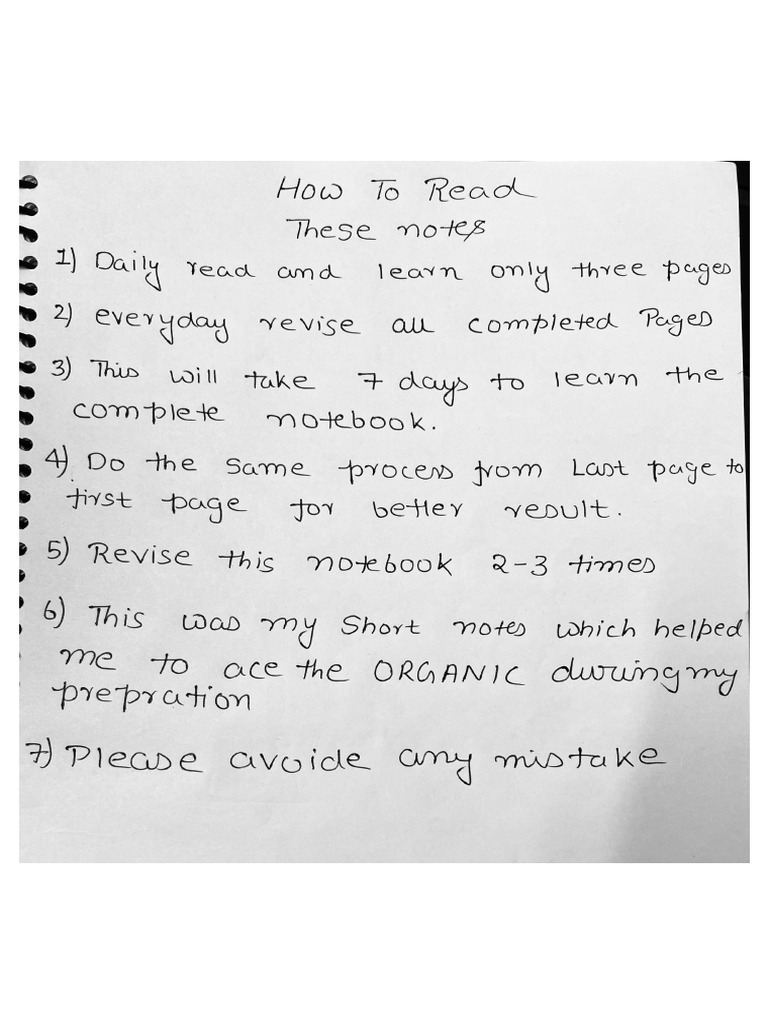 How To Read
These notes
1) Daily read and learn only three pages
2) everyday revise all completed Pages
3) This will take 7 days to learn the
complete notebook.
4) Do the same process from Last page to
first page for better result.
5) Revise this notebook 2-3 times
6) This was my short notes which helped
me to ace the ORGANIC during my
prepration
7) Please avoide any mistake